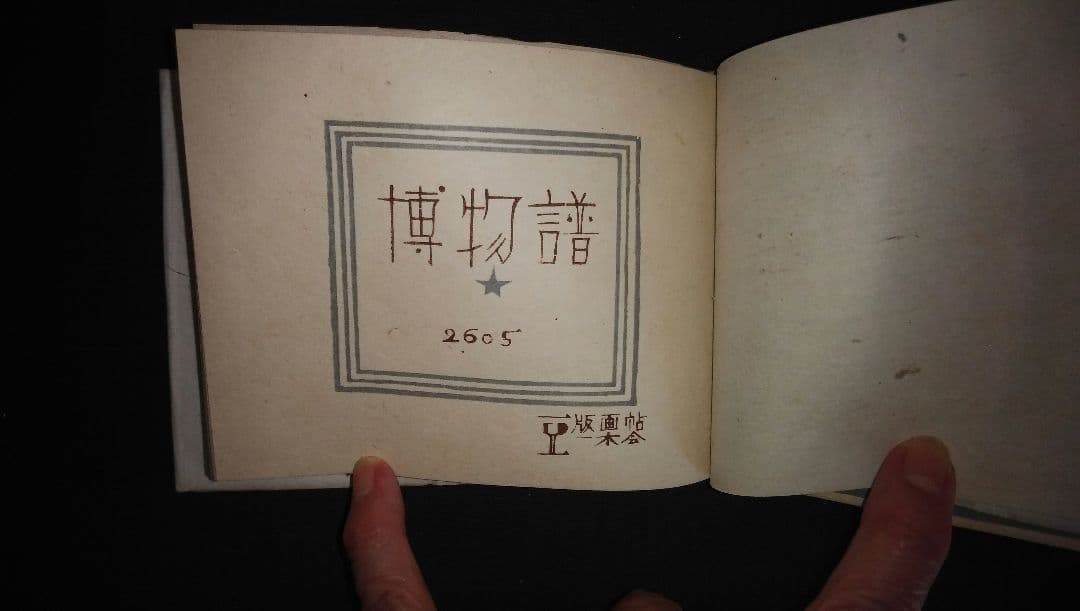 博物譜
★
2605
豆版画帖
一木会